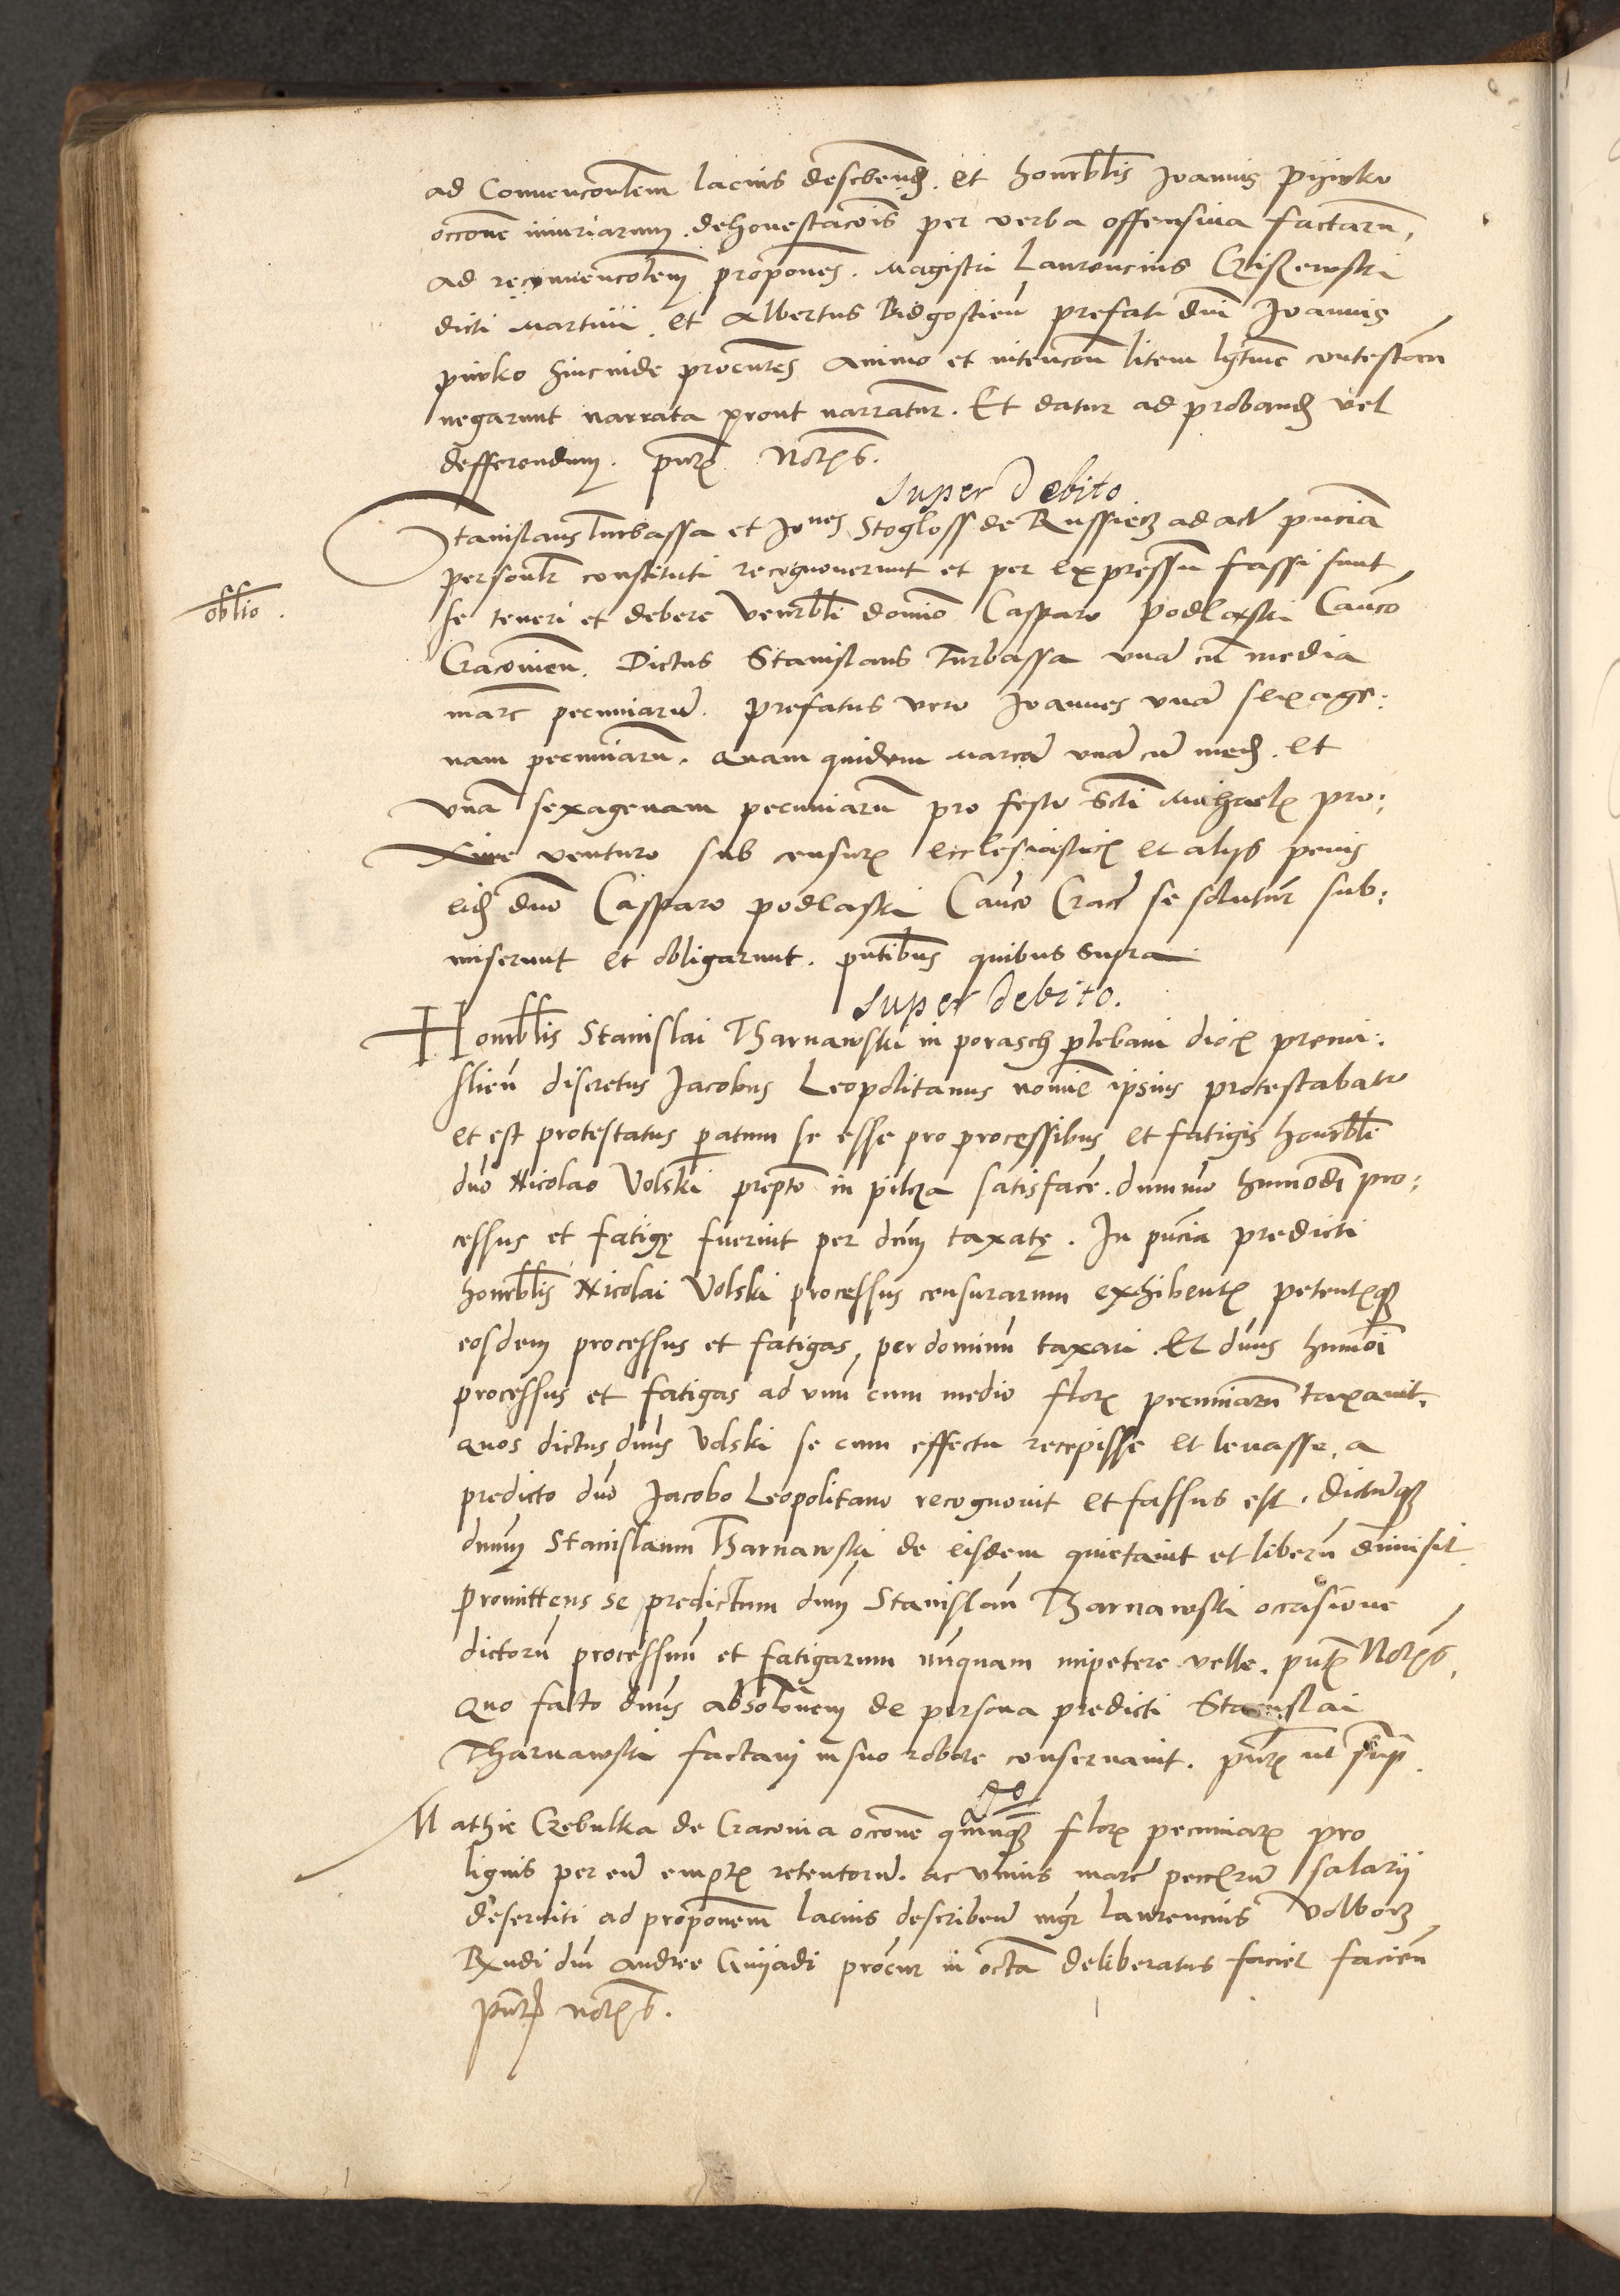 ad Conuenconlem lacius describend. et honorblis Joannis Pijnko
occone iniuriarum. dehonestacois per verba offensiua factaru,
ad reconuencolem propones. Magistri Laurencius
dicti Martini et Albertus Bidgostien prefati dni Joannis
pinko hincinde procures animo et intencon litem lgtime contestan
negarunt narrata prout narratur. Et datur ad proband vel
defferendum. pntx Notxs.
Super Debito
Stanislaus Turbassa et Jones Stogloss de Russiecz ad act pnciam
personlr constituti recognouerunt et per expressum fassi sunt
oblio.
se teneri et debere venerbli domino Casparo podlaski Canco
Cracouien. Dictus Stanislaus Turbassa vnam cu media
marc pecuniaru. prefatus vero Joannes vnam sexage:
nam pecuniaru. quam quidem Marcam vnam cu med. et
vnam sexagenam pecuniaru pro festo Scti Michaelis pro:
xime venturo sub censuris ecclesiasticis et alijs penis
eid dno Casparo podlaski Canco Crac se soluturum sub:
miserunt et obligarunt. pntibus quibus supra
Super debito.
Honorblis Stanislai Tharnawski in porasch plebani dioc premi:
slien discretus Jacobus Leopolitanus nomine ipsius protestabatur
et est protestatus paratum se esse pro processibus et fatigis honorbli
dno Nicolao Volski prepto in pilcza satisfacere. dummo humodi pro:
cessus et fatige fuerint per dnm taxate. In pncia predicti
honorblis Nicolai Volski processus censurarum exhibentis petentisque
eosdem processus et fatigas, per dominum taxari. Et dnus humoi
processus et fatigas ad vnum cum medio flor pecuniarum taxauit.
quos dictus dnus Volski se cum effectu recepisse et leuasse, a
predicto dno Jacobo Leopolitano recognouit et fassus est. dictumque
dnum Stanislaum Tharnawski de eisdem quietauit et liberum dimisit
promittens se predictum dnm Stanislaum Tharnawski occasione
dictorum processuum et fatigarum nunquam impetere velle. pntx Notxs.
quo facto dnus absolonem de persona predicti Stanislai
Tharnawski factam in suo robore conseruauit. pntx ut sup.
Mathie Czebulka de Cracouia occone quinque flor pecuniar pro
lignis per eum emptis retentorum. ac vnius marc pecuniarum salarij
deseruiti ad proponem lacius describen mgr Laurencius Volborz
Rxndi dni Andree procur in octa deliberatus faciet facien
pntx notxs.